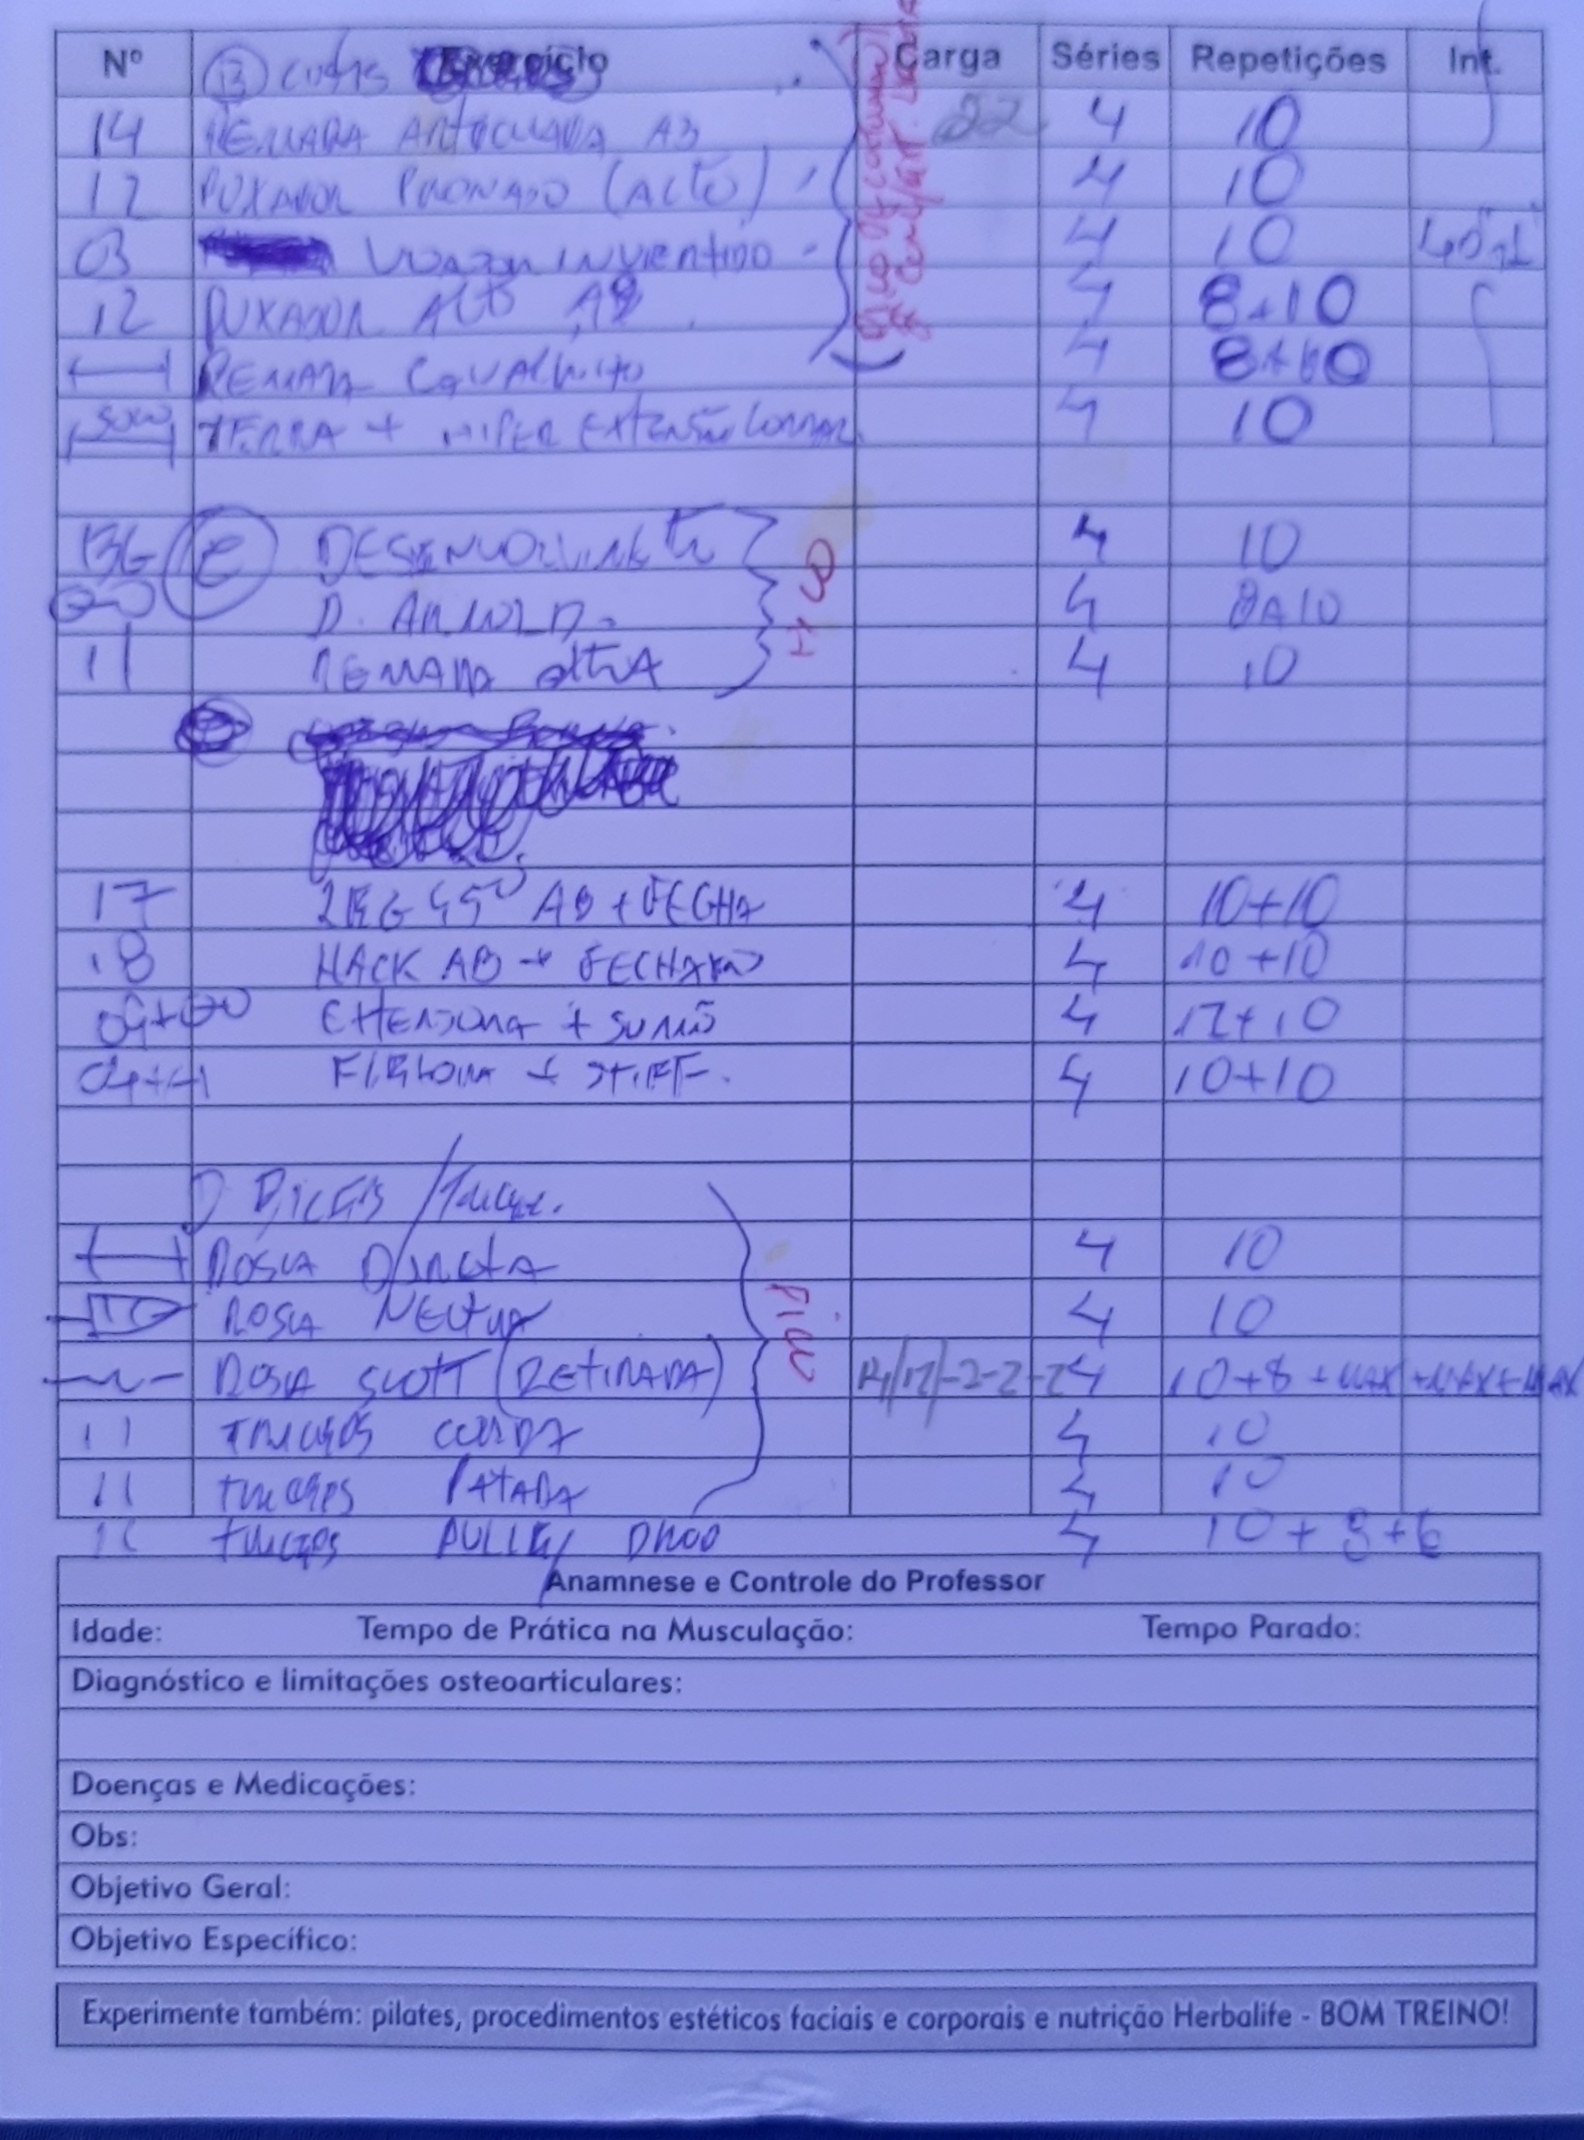 Nº Exercício Carga Séries Repetições Int.
14 REMADA ARTICULADA 22 4 10
12 PUXADOR PRONADO (ALTO) 4 10
03 INVERTIDO 4 10
12 PUXADOR ALTO 4 8+10
REMADA CAVALINHO 4 8+10
TERRA + HIPER EXTENSÃO LOMBAR 4 10
DESENVOLVIMENTO 4 10
D. ARNOLD 4 8A10
11 REMADA ALTA 4 10
17 LEG 45° AB + FECHA 4 10+10
18 HACK AB + FECHADO 4 10+10
EXTENSORA + SUMÔ 4 12+10
FLEXORA + STIFF. 4 10+10
D BICEPS / TRICEPS.
ROSCA DIRETA 4 10
ROSCA NEUTRA 4 10
ROSCA SCOTT (RETIRADA) 4 10+8+MAX+MAX+MAX
11 TRICEPS CORDA 4 10
11 TRICEPS PATADA 4 10
11 TRICEPS PULLEY DROP 4 10+8+6
Anamnese e Controle do Professor
Idade: Tempo de Prática na Musculação: Tempo Parado:
Diagnóstico e limitações osteoarticulares:
Doenças e Medicações:
Obs:
Objetivo Geral:
Objetivo Específico:
Experimente também: pilates, procedimentos estéticos faciais e corporais e nutrição Herbalife - BOM TREINO!